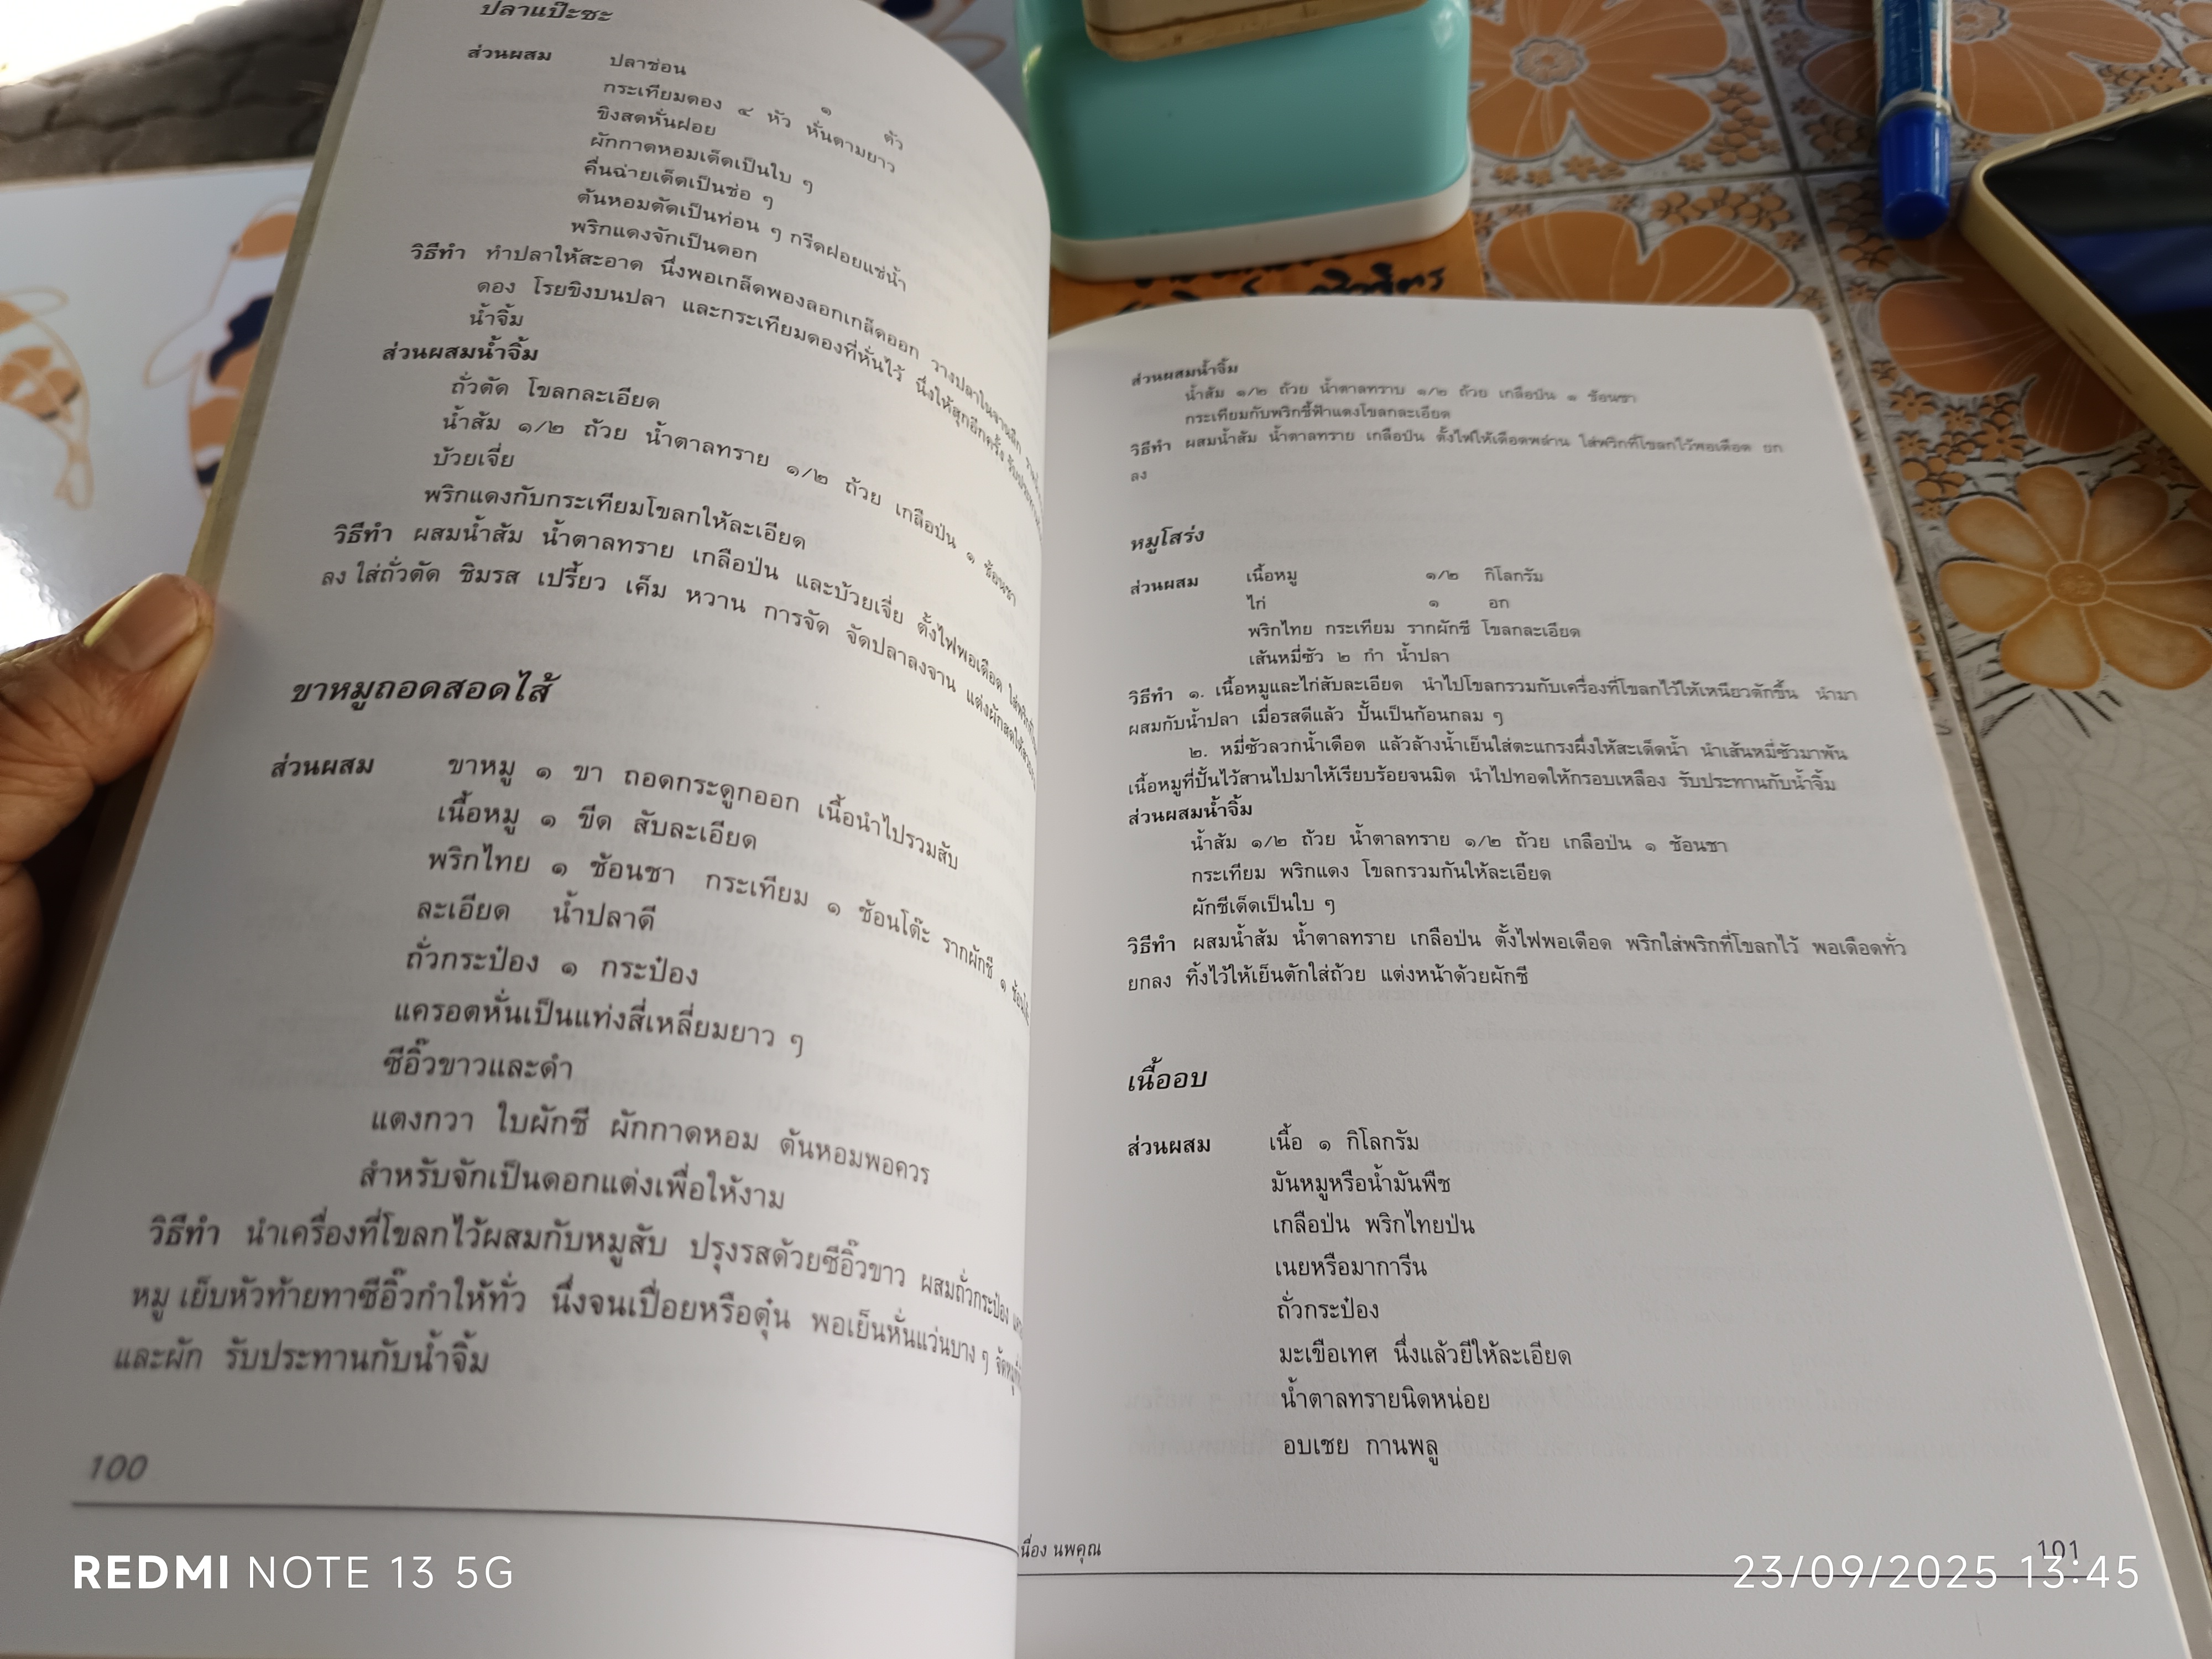 ปลาแป๊ะซะ
ส่วนผสม ปลาช่อน ๑ ตัว
กระเทียมดอง ๔ หัว หั่นตามยาว
ขิงสดหั่นฝอย
ผักกาดหอมเด็ดเป็นใบ ๆ
คื่นฉ่ายเด็ดเป็นช่อ ๆ
ต้นหอมตัดเป็นท่อน ๆ กรีดฝอยแช่น้ำ
พริกแดงจักเป็นดอก
วิธีทำ ทำปลาให้สะอาด นึ่งพอเกล็ดพองลอกเกล็ดออก วางปลาในจานลึก
ดอง โรยขิงบนปลา และกระเทียมดองที่หั่นไว้ นึ่งให้สุกอีกครั้ง
น้ำจิ้ม
ส่วนผสมน้ำจิ้ม
ถั่วตัด โขลกละเอียด
น้ำส้ม ๑/๒ ถ้วย น้ำตาลทราย ๑/๒ ถ้วย เกลือป่น ๑ ช้อนชา
บ้วยเจี่ย
พริกแดงกับกระเทียมโขลกให้ละเอียด
วิธีทำ ผสมน้ำส้ม น้ำตาลทราย เกลือป่น และบ้วยเจี่ย ตั้งไฟพอเดือด
ลง ใส่ถั่วตัด ชิมรส เปรี้ยว เค็ม หวาน การจัด จัดปลาลงจาน
ขาหมูถอดสอดไส้
ส่วนผสม ขาหมู ๑ ขา ถอดกระดูกออก เนื้อนำไปรวมสับ
เนื้อหมู ๑ ขีด สับละเอียด
พริกไทย ๑ ช้อนชา กระเทียม ๑ ช้อนโต๊ะ รากผักชี ๑
ละเอียด น้ำปลาดี
ถั่วกระป๋อง ๑ กระป๋อง
แครอตหั่นเป็นแท่งสี่เหลี่ยมยาว ๆ
ซีอิ๊วขาวและดำ
แตงกวา ใบผักชี ผักกาดหอม ต้นหอมพอควร
สำหรับจักเป็นดอกแต่งเพื่อให้งาม
วิธีทำ นำเครื่องที่โขลกไว้ผสมกับหมูสับ ปรุงรสด้วยซีอิ๊วขาว ผสมถั่วกระป๋อง
หมู เย็บหัวท้ายทาซีอิ๊วกำให้ทั่ว นึ่งจนเปื่อยหรือตุ๋น พอเย็นหั่นแว่นบาง ๆ
และผัก รับประทานกับน้ำจิ้ม
100
ส่วนผสมน้ำจิ้ม
น้ำส้ม ๑/๒ ถ้วย น้ำตาลทราบ ๑/๒ ถ้วย เกลือป่น ๑ ช้อนชา
กระเทียมกับพริกชี้ฟ้าแดงโขลกละเอียด
วิธีทำ ผสมน้ำส้ม น้ำตาลทราย เกลือป่น ตั้งไฟให้เดือดพล่าน ใส่พริกที่โขลกไว้พอเดือด ยก
ลง
หมูโสร่ง
ส่วนผสม เนื้อหมู ๑/๒ กิโลกรัม
ไก่ ๑ อก
พริกไทย กระเทียม รากผักชี โขลกละเอียด
เส้นหมี่ซัว ๒ กำ น้ำปลา
วิธีทำ ๑. เนื้อหมูและไก่สับละเอียด นำไปโขลกรวมกับเครื่องที่โขลกไว้ให้เหนียวตักขึ้น นำมา
ผสมกับน้ำปลา เมื่อรสดีแล้ว ปั้นเป็นก้อนกลม ๆ
๒. หมี่ซัวลวกน้ำเดือด แล้วล้างน้ำเย็นใส่ตะแกรงผึ่งให้สะเด็ดน้ำ นำเส้นหมี่ซัวมาพัน
เนื้อหมูที่ปั้นไว้สานไปมาให้เรียบร้อยจนมิด นำไปทอดให้กรอบเหลือง รับประทานกับน้ำจิ้ม
ส่วนผสมน้ำจิ้ม
น้ำส้ม ๑/๒ ถ้วย น้ำตาลทราย ๑/๒ ถ้วย เกลือป่น ๑ ช้อนชา
กระเทียม พริกแดง โขลกรวมกันให้ละเอียด
ผักชีเด็ดเป็นใบ ๆ
วิธีทำ ผสมน้ำส้ม น้ำตาลทราย เกลือป่น ตั้งไฟพอเดือด พริกใส่พริกที่โขลกไว้ พอเดือดทั่ว
ยกลง ทิ้งไว้ให้เย็นตักใส่ถ้วย แต่งหน้าด้วยผักชี
เนื้ออบ
ส่วนผสม เนื้อ ๑ กิโลกรัม
มันหมูหรือน้ำมันพืช
เกลือป่น พริกไทยป่น
เนยหรือมาการีน
ถั่วกระป๋อง
มะเขือเทศ นึ่งแล้วยีให้ละเอียด
น้ำตาลทรายนิดหน่อย
อบเชย กานพลู
เนื่อง นพคุณ
101
REDMI NOTE 13 5G
23/09/2025 13:45